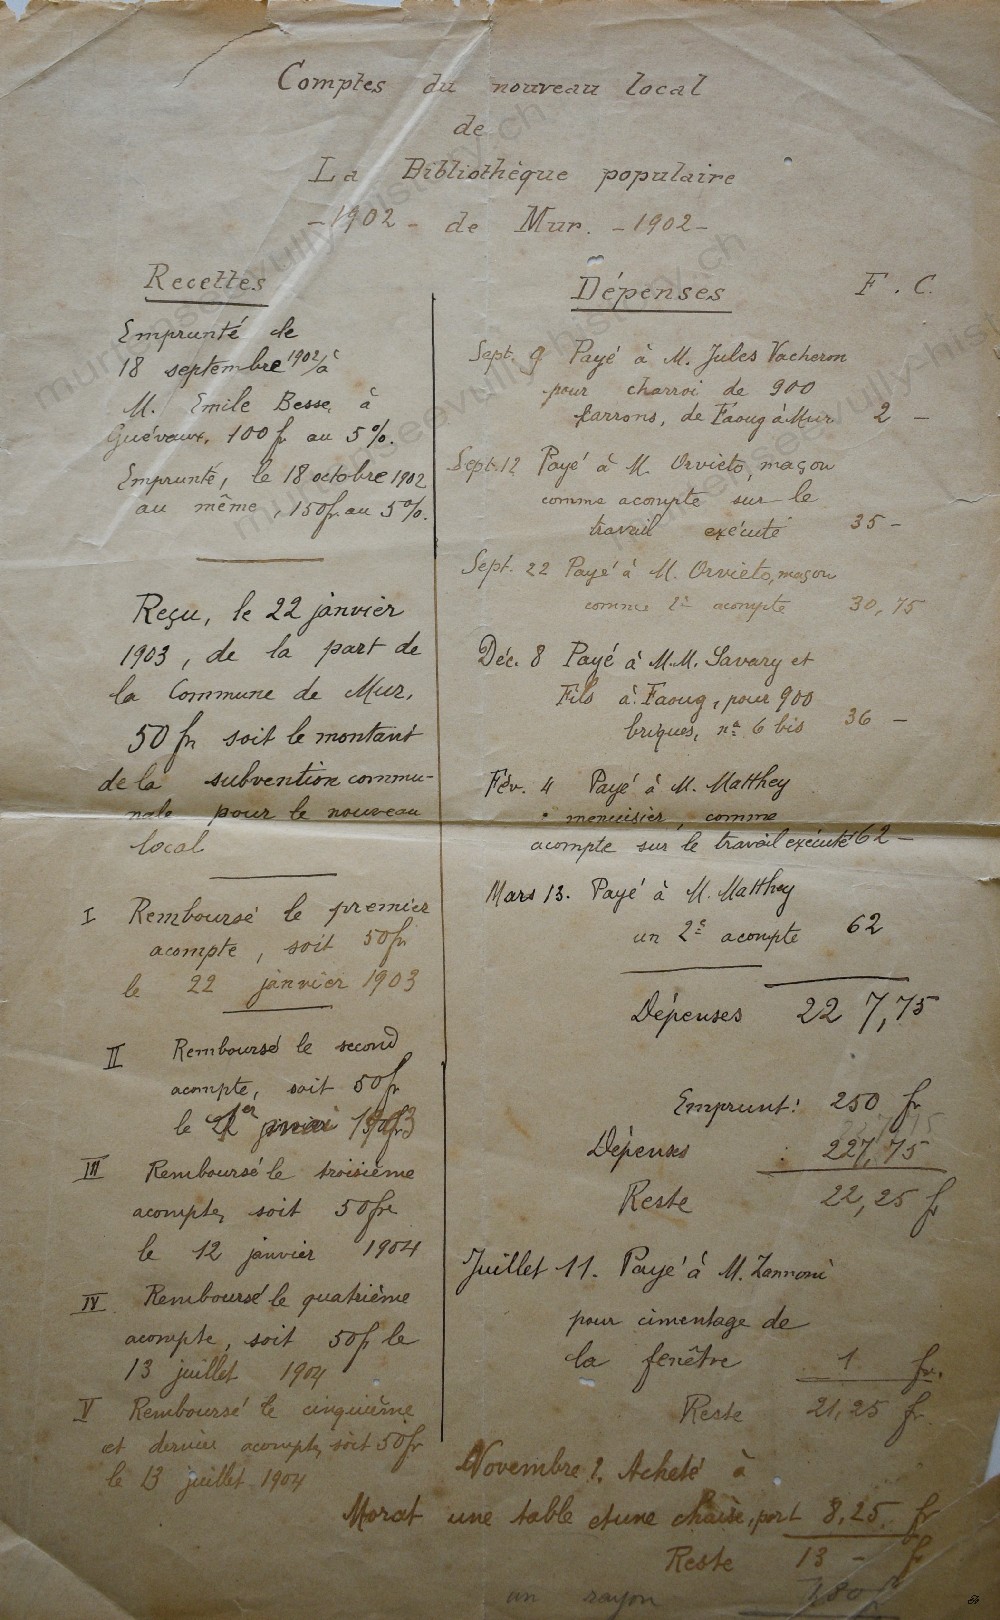 Comptes du nouveau local
de
La Bibliothèque populaire
-1902- de Mur. -1902-
Recettes
Emprunté le
18 septembre 1902 à
M. Emile Besse, à
Guévaux, 100 f au 5%.
Emprunté, le 18 octobre 1902
au même, 150 fr. au 5%.
Reçu, le 22 janvier
1903, de la part de
la Commune de Mur,
50 fr soit le montant
de la subvention commu-
nale pour le nouveau
local
I Remboursé le premier
acompte, soit 50 fr
le 22 janvier 1903
II Remboursé le second
acompte, soit 50 fr
le 1903
III Remboursé le troisième
acompte, soit 50 fr
le 12 janvier 1904
IV Remboursé le quatrième
acompte, soit 50 f le
13 juillet 1904
V Remboursé le cinquième
et dernier acompte, soit 50 fr
le 13 juillet 1904
Dépenses F. C.
Sept. 9 Payé à M. Jules Vacheron
pour charroi de 900
carrons, de Faoug à Mur 2 -
Sept. 12 Payé à M. Orvieto, maçon
comme acompte sur le
travail exécuté 35 -
Sept. 22 Payé à M. Orvieto, maçon
comme 2e acompte 30,75
Déc. 8 Payé à M.M. Savary et
Fils à Faoug, pour 900
briques, no 6 bis 36 -
Fév. 4 Payé à M. Matthey
menuisier, comme
acompte sur le travail exécuté 62 -
Mars 13. Payé à M. Matthey
un 2e acompte 62
Dépenses 227,75
Emprunt: 250 fr
Dépenses : 227,75
Reste 22,25 fr
Juillet 11. Payé à M. Zannoni
pour cimentage de
la fenêtre 1 fr.
Reste 21,25 fr.
Novembre ?. Acheté à
Morat une table et une chaise, port 8,25 fr
Reste 13 - fr
un rayon
murmonseevully-history.ch